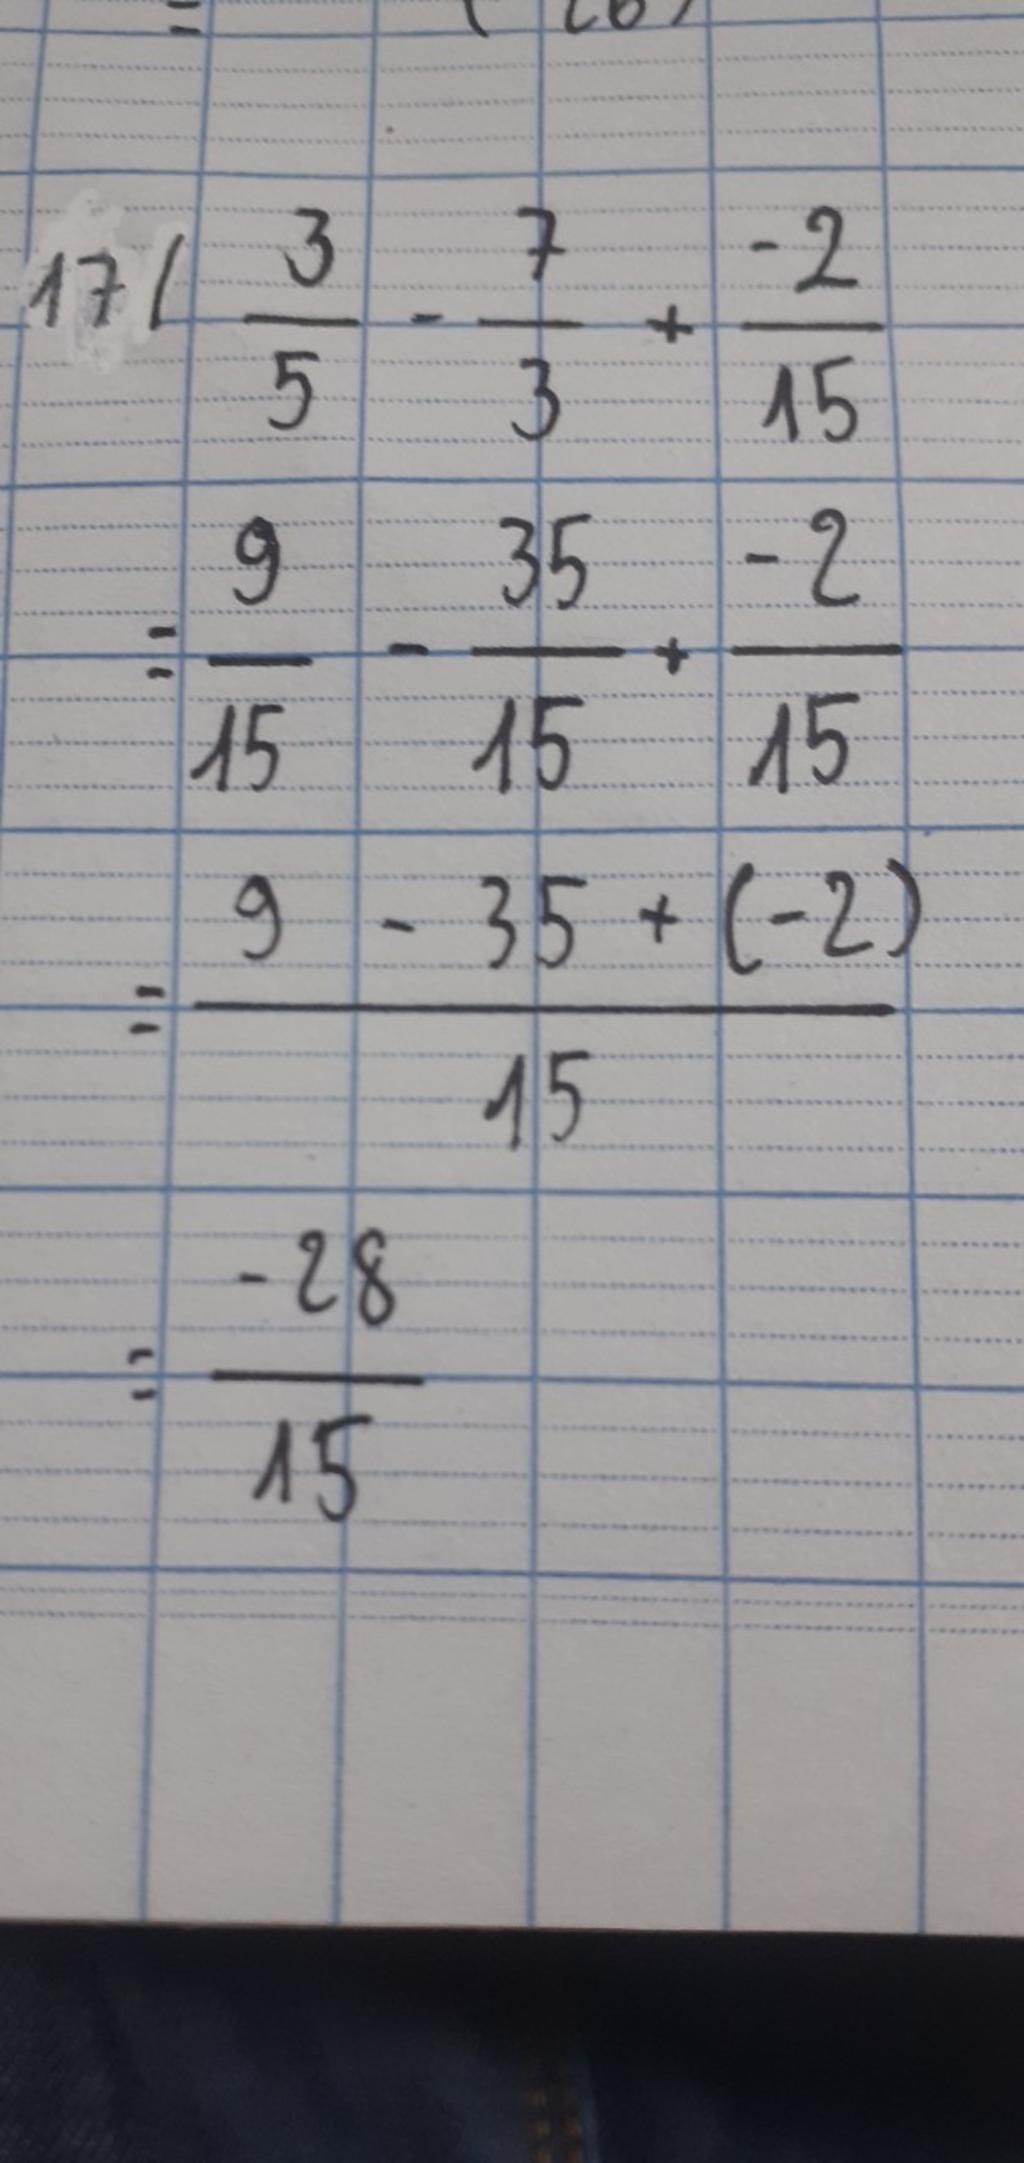 17/ 3/5 - 7/3 + -2/15
= 9/15 - 35/15 + -2/15
= 9 - 35 + (-2) / 15
= -28/15